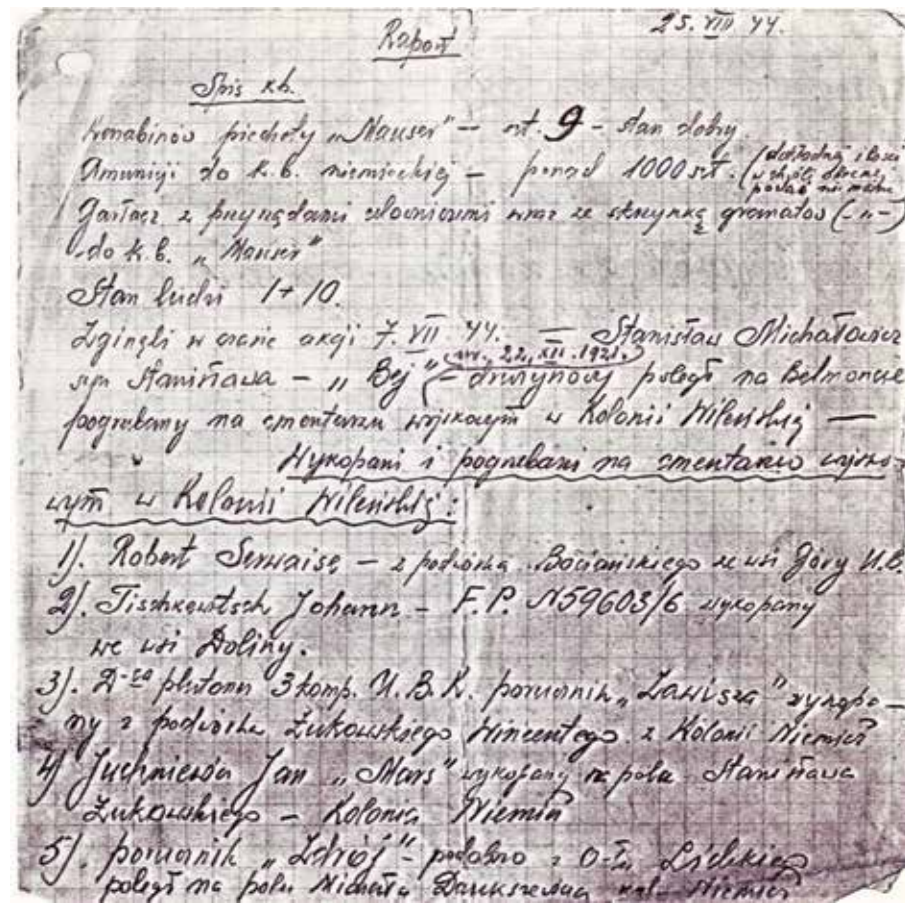 25. VIII 44.
Raport
Spis kb.
Karabinów piechoty „Mauser" – szt. 9 – stan dobry.
Amunicji do k.b. niemieckiej – ponad 1000 szt. (dokładną ilość
w chwili obecnej
podać nie mogę
Garłacz z przyrządami celowniczemi wraz ze skrzynką granatów (–„–)
do k.b. „Mauser"
Stan ludzi 1+10.
Zginęli w czasie akcji 7. VII 44. — Stanisław Michałowicz
ur. 22. XII. 1921.
syn Stanisława – „Bej" – drużynowy poległ na Belmoncie
pogrzebany na cmentarzu wojskowym w Kolonii Wileńskiej —
Wykopani i pogrzebani na cmentarzu wojsko-
wym w Kolonii Wileńskiej:
1). Robert – z podwórka Bociańskiego ze wsi Góry
2). Tischkewitsch Johann – F.P. N59603/6 wykopany
we wsi Doliny.
3). D-ca plutonu 3 komp. U.B.K. porucznik „Zawisza" wykopa-
ny z podwórka Żukowskiego Wincentego z Kolonii Niemież
4) Juchniewicz Jan „Mars" wykopany na polu Stanisława
Żukowskiego – Kolonia Niemież
5). porucznik „Zdrój" – podobno z O-łu Lidzkiego
poległ na polu Michała kol. Niemież